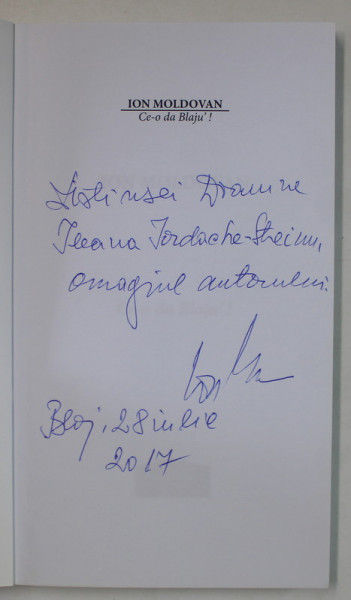 ION MOLDOVAN
Ce-o da Blaju' !
Distinsei Doamne
Ileana Iordache-Streinu,
omagiul autorului.
Blaj, 28 iulie
2017